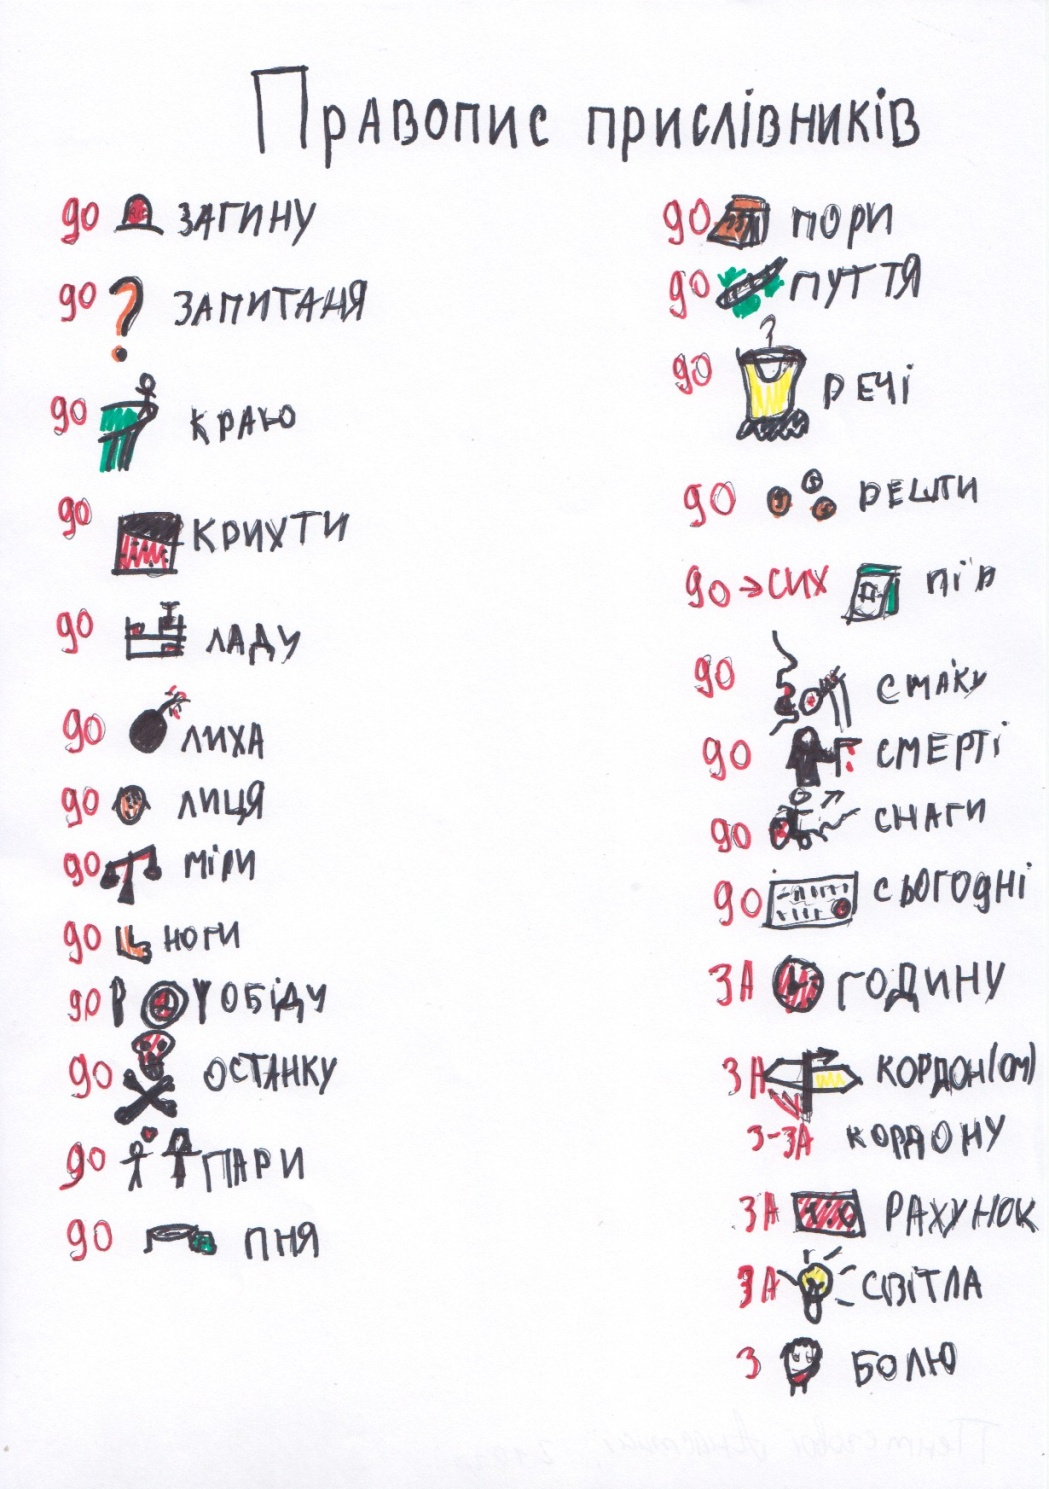 Правопис прислівників
до загину
до запитаня
до краю
до крихти
до ладу
до лиха
до лиця
до міри
до ноги
до обіду
до останку
до пари
до пня
до пори
до пуття
до речі
до решти
до → сих пір
до смаку
до смерті
до снаги
до сьогодні
за годину
за кордон(ом)
з-за кордону
за рахунок
за світла
з болю